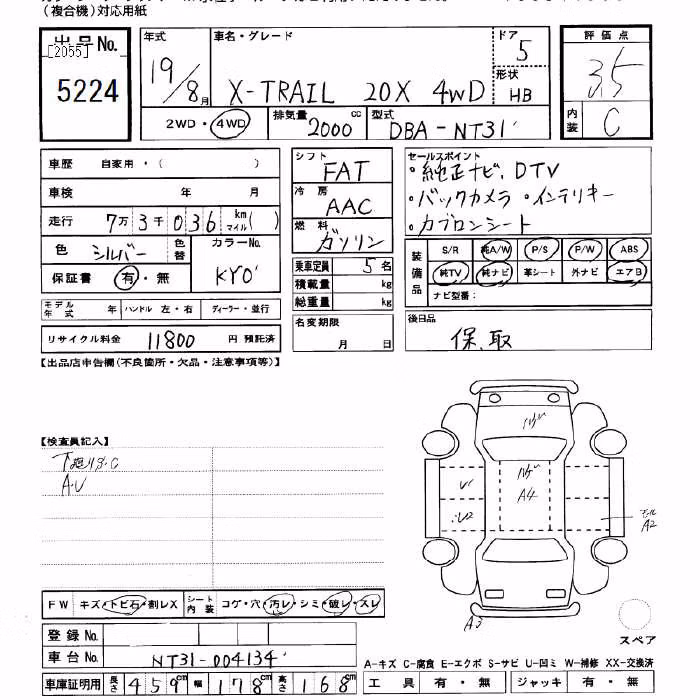 (複合機)対応用紙
出品No. [2055] 5224
年式 19/8月
車名・グレード X-TRAIL 20X 4WD
ドア 5
形状 HB
評価点 3.5
内装 C
2WD・4WD
排気量 2000 cc
型式 DBA-NT31
車歴 自家用・( )
車検 年 月
走行 7万3千036 km マイル( )
色 シルバー 色替 カラーNo. KY0
保証書 有・無
モデル年式 年 ハンドル 左・右 ディーラー・並行
リサイクル料金 11800 円 預託済
シフト FAT
冷房 AAC
燃料 ガソリン
乗車定員 5名
積載量 kg
総重量 kg
名変期限 月 日
セールスポイント
・純正ナビ、DTV
・バックカメラ・インテリキー
・カブロンシート
装備品 S/R 純A/W P/S P/W ABS
純TV 純ナビ 革シート 外ナビ エアB
ナビ型番:
後日品 保、取
【出品店申告欄(不良箇所・欠品・注意事項等)】
【検査員記入】
A・U
U1
U2
A4
A2
A3
FW キズ・トビ石・割レX シート内装 コゲ・穴・汚レ・シミ・破レ・スレ
スペア
登録No.
車台No. NT31-004134
A-キズ C-腐食 E-エクボ S-サビ U-凹ミ W-補修 XX-交換済
車庫証明用 長さ 459cm 幅 178cm 高さ 168cm
工具 有・無 ジャッキ 有・無